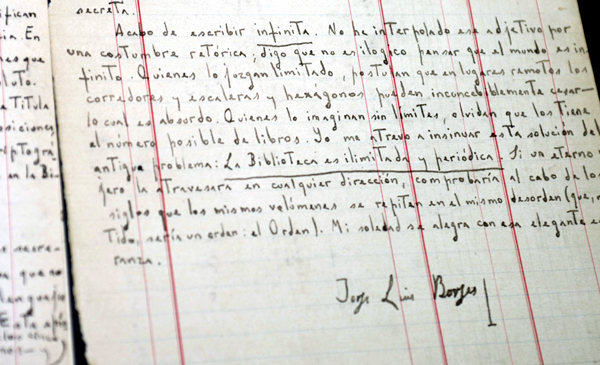 ifican
ia. En
nes que
luto.
a Titula
osiciones,
riptográ
en la Bi-
secre-
na que no
lenguaje
Esta epís
secreta.
Acabo de escribir infinita. No he interpolado ese adjetivo por
una costumbre retórica; digo que no es ilógico pensar que el mundo es in-
finito. Quienes lo juzgan limitado, postulan que en lugares remotos los
corredores y escaleras y hexágonos pueden inconcebiblemente cesar—
lo cual es absurdo. Quienes lo imaginan sin límites, olvidan que los tiene
el número posible de libros. Yo me atrevo a insinuar esta solución del
antiguo problema: La Biblioteca es ilimitada y periódica. Si un eterno
jero la atravesara en cualquier dirección, comprobaría al cabo de los
siglos que los mismos volúmenes se repiten en el mismo desorden (que, r
tido, sería un orden: el Orden). Mi soledad se alegra con esa elegante es
ranza.
Jorge Luis Borges